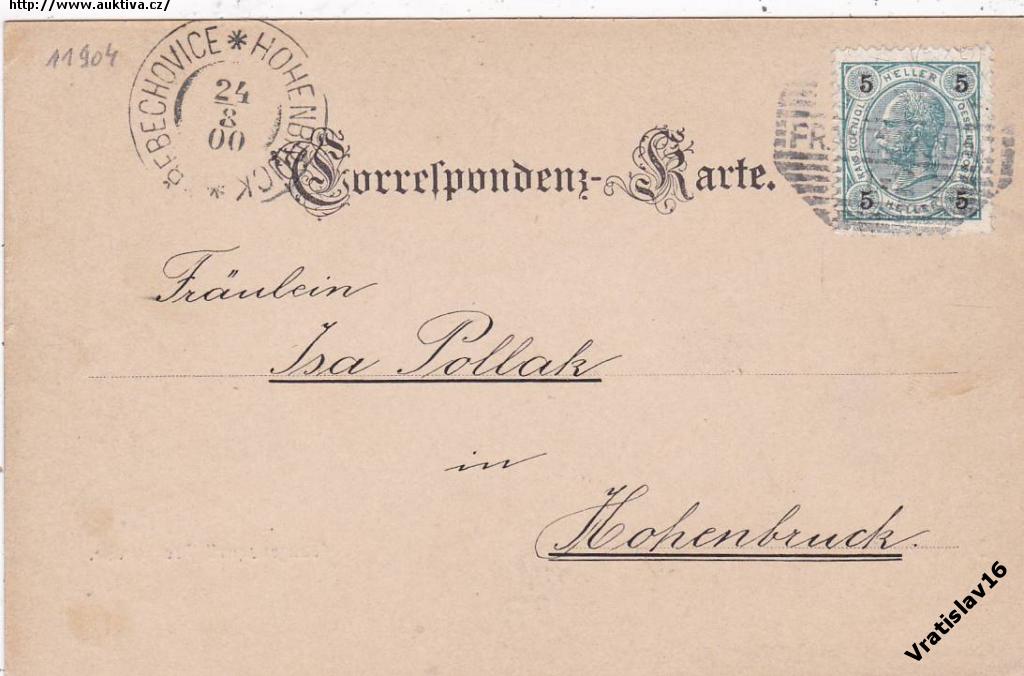 http://www.auktiva.cz/
11904
TŘEBECHOVICE * HOHENBRUCK *
24
8
00
Correspondenz-Karte.
5 HELLER 5
5 HELLER 5
Fräulein
Isa Pollak
in
Hohenbruck.
Vratislav16